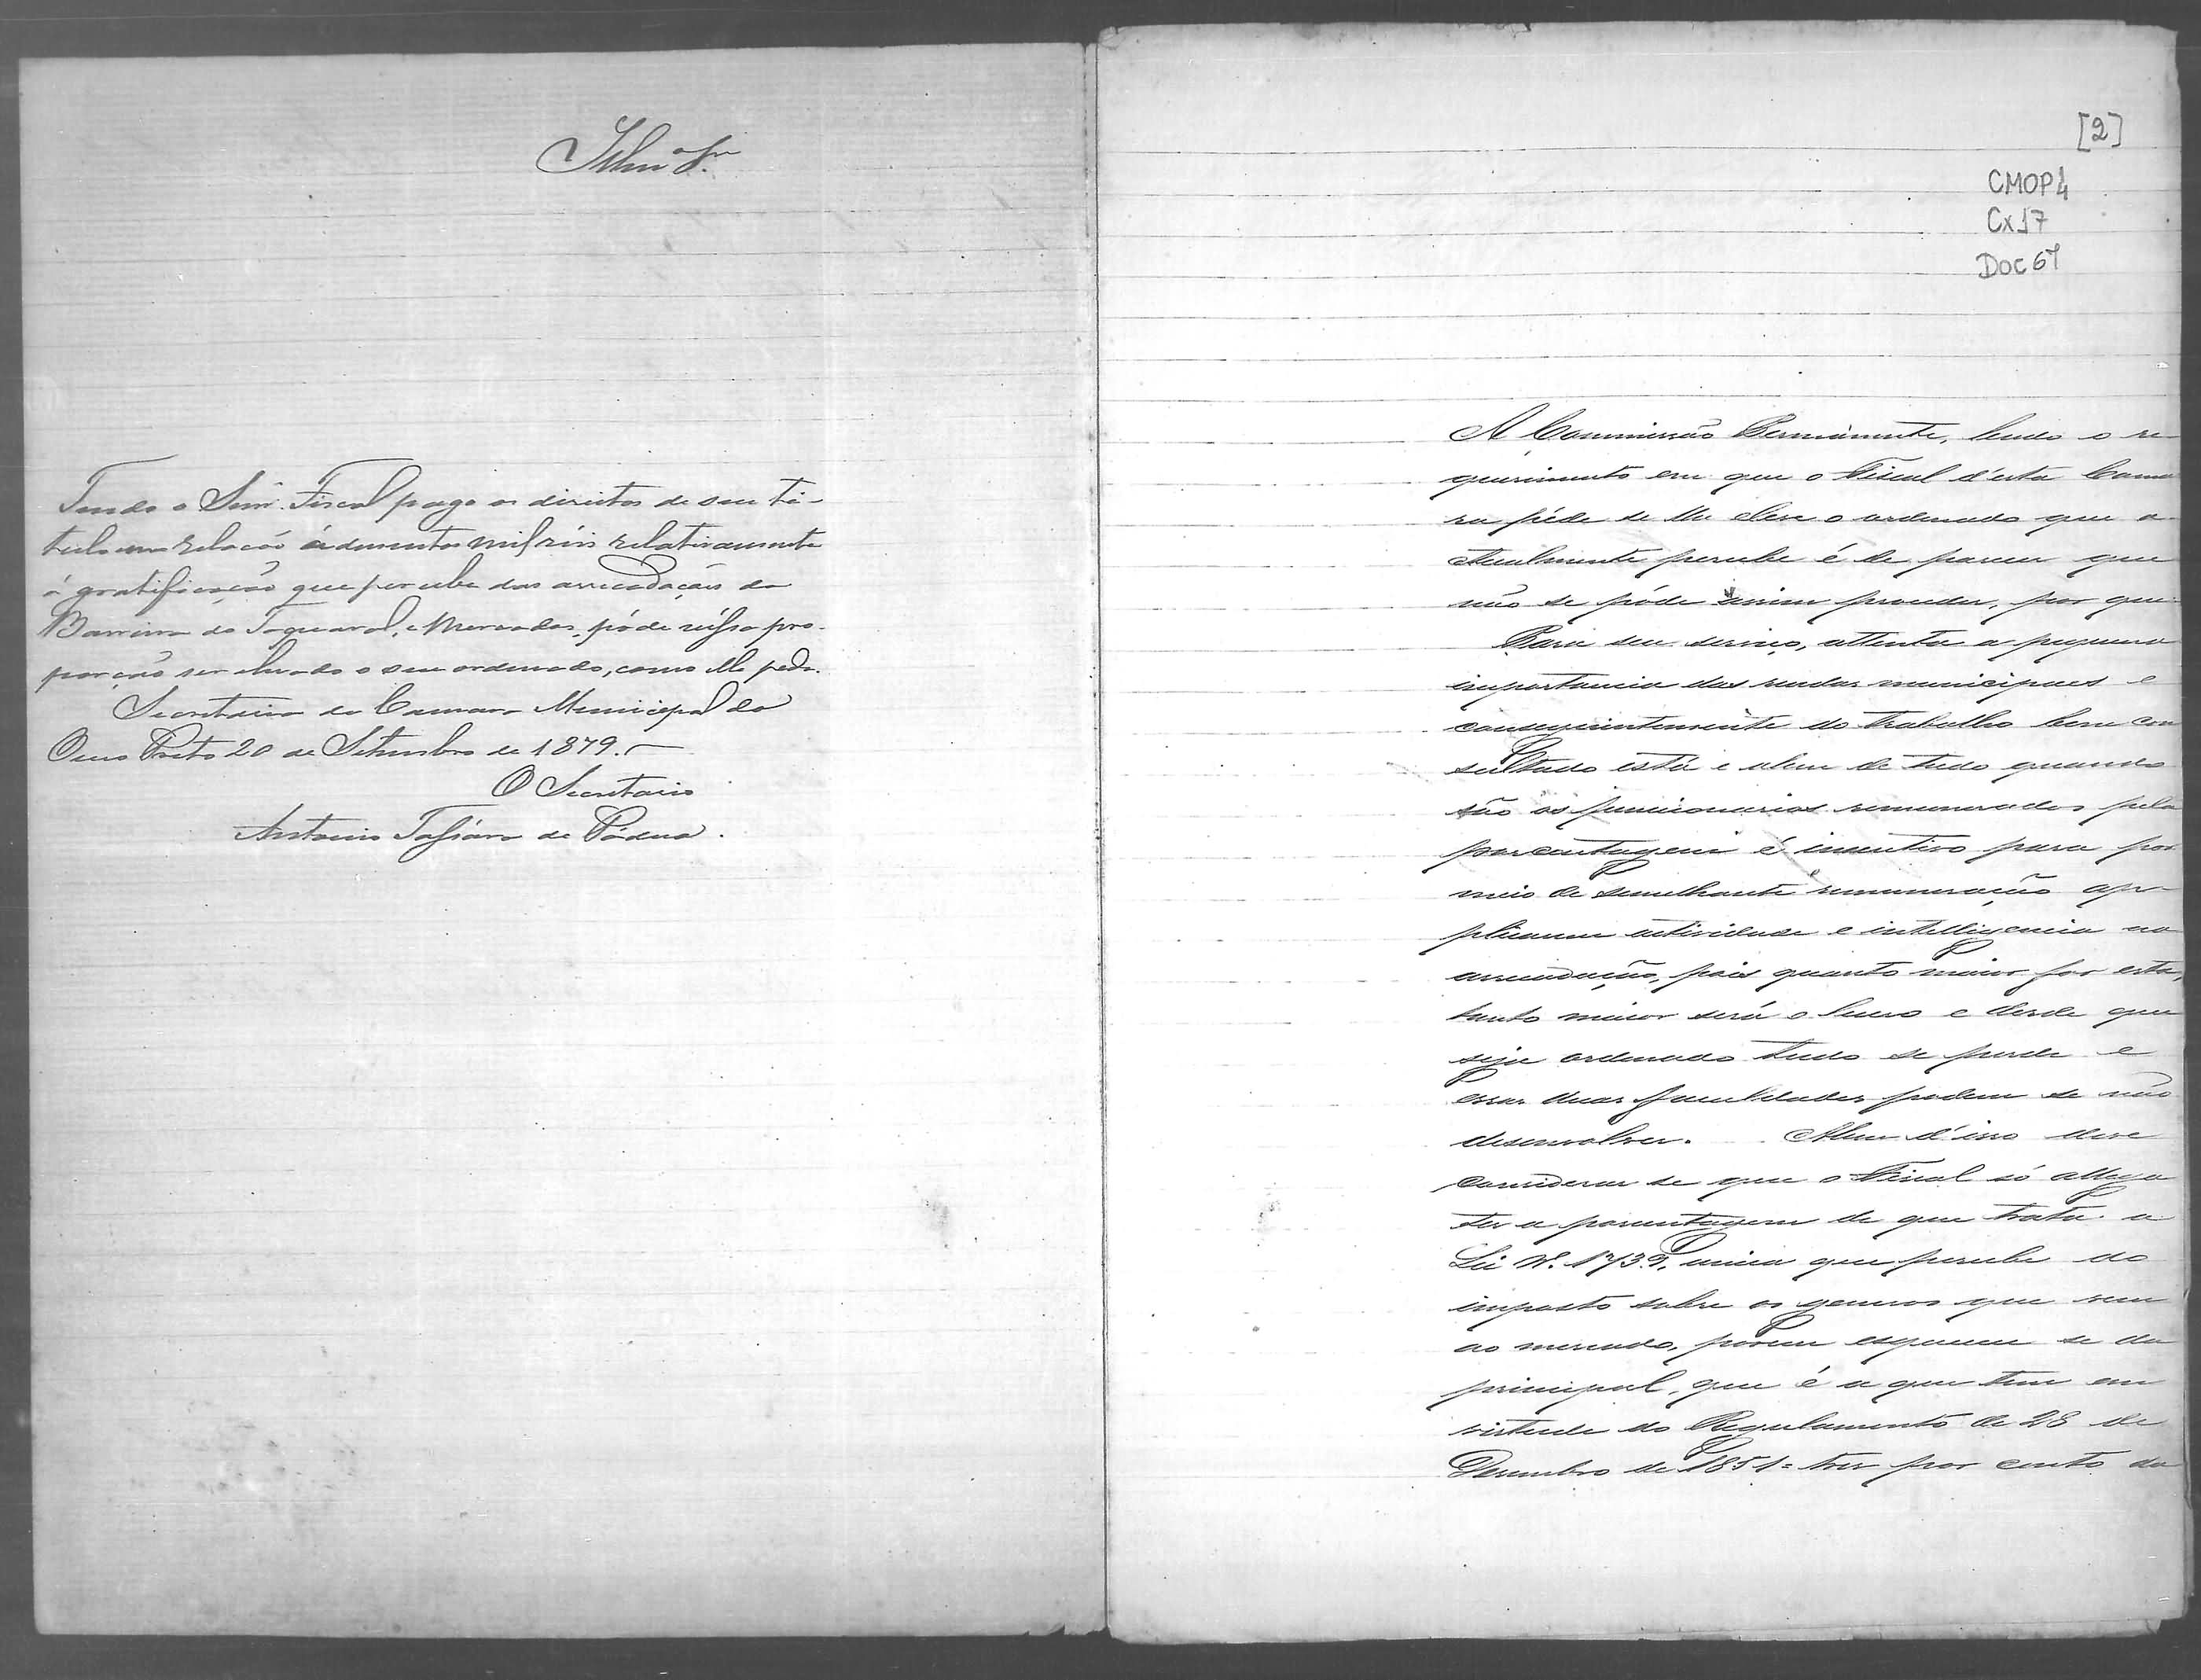 Illmo Sr.
Tendo o Senr. Fiscal pago os direitos de seu ti-
tulo em relacão á dusentos mil réis relativamente
á gratificacão que percebe das arrecadações da
Barreira do Taquaral, e Mercados, póde n'essa pro-
porção ser elevado o seu ordenado, como elle pede.
Secretaria da Camara Municipal do
Ouro Preto 20 de Setembro de 1879.
O Secretario
Antonio de Pádua.
[2]
CMOP4
Cx17
Doc 67
A Commissão Permanente, lendo o re-
querimento em que o Fiscal d'esta Cama
ra péde se lhe eleve o ordenado que a-
ctualmente percebe é de parecer que
não se póde assim proceder, por que
Para seu serviço, attenta a pequena
importancia das rendas municipaes e
conseguintemente do trabalho bem con
sultado está e alem de tudo quando
são os funcionarios remunerados pela
porcentagem é incentivo para por
meio de semelhante remuneração ap-
plicarem actividade e intelligencia na
arrecadação, pois quanto maior for esta,
tanto maior será o lucro e desde que
seja ordenado tudo se perde e
essas duas faculdades podem se não
desenvolver. Alem d'isso deve
considerar se que o Fiscal só allega
ter a porcentagem de que trata a
Lei Nº. 1739, unica que percebe do
imposto sobre os generos que vem
ao mercado, porem esquece se da
principal, que é a que tem em
virtude do Regulamento de 28 de
Desembro de 1851 = tres por cento da